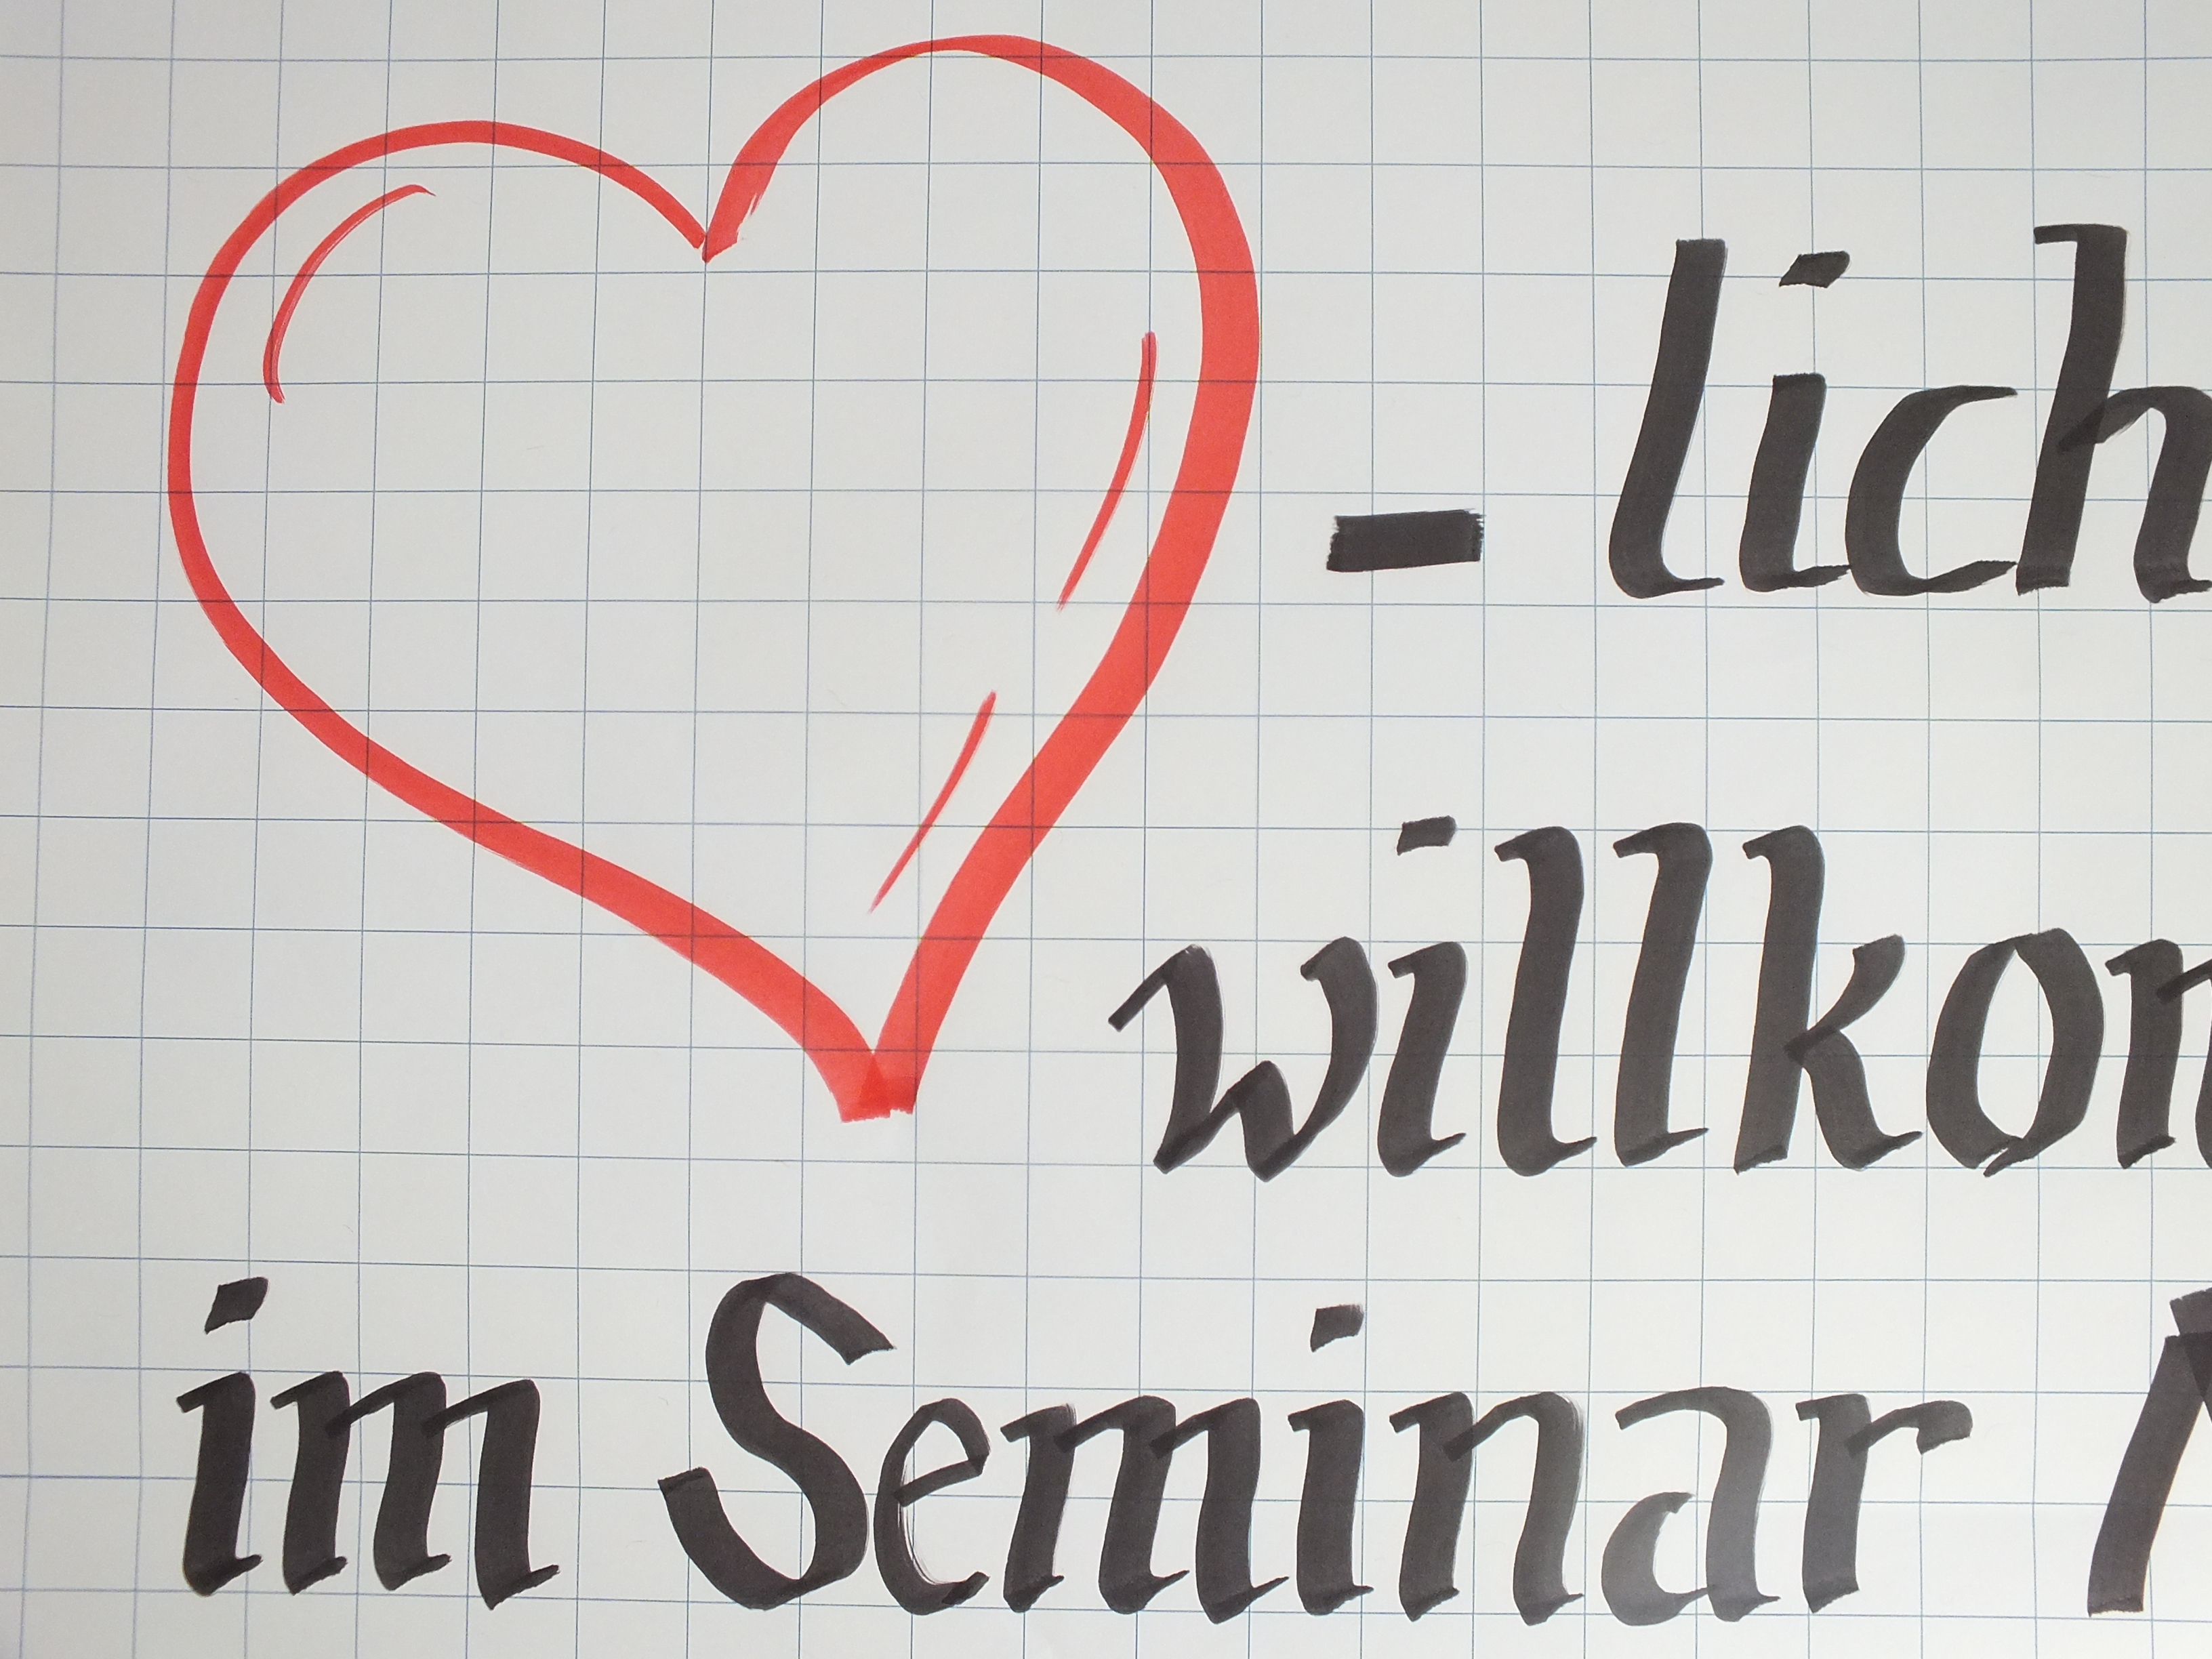 - lich
willkom
im Seminar